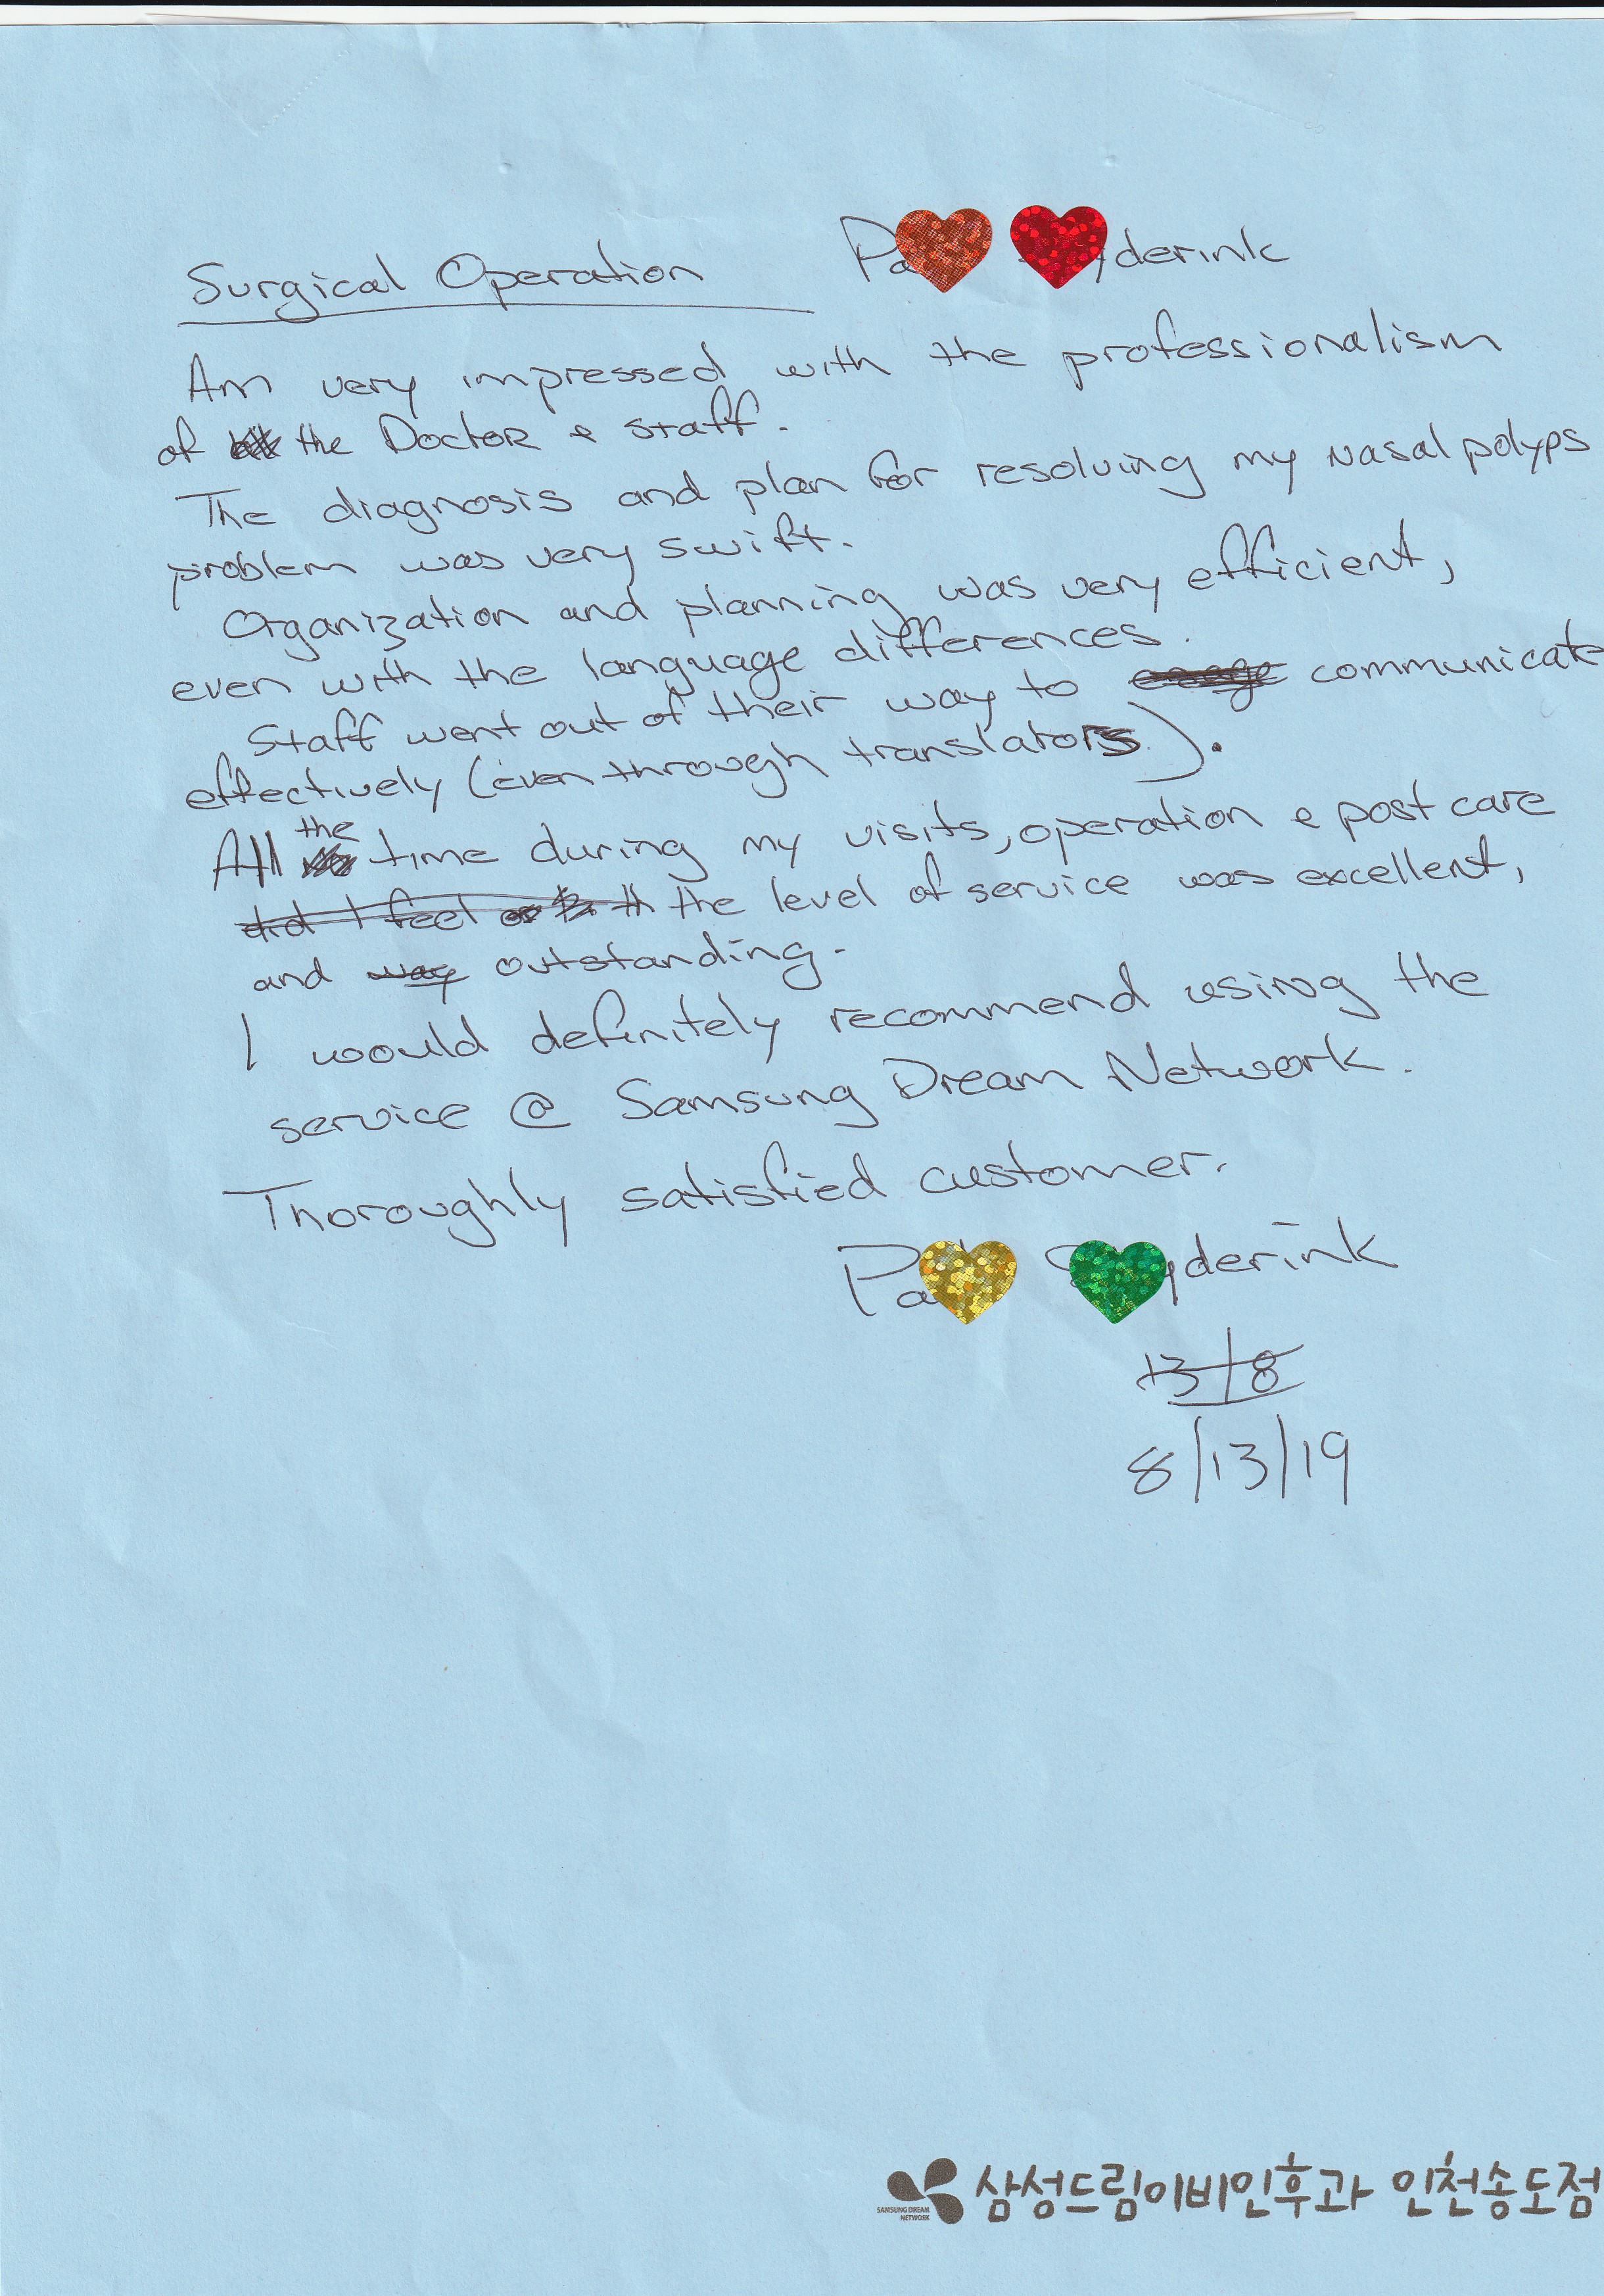 Surgical Operation
derink
Am very impressed with the professionalism
of the Doctor & staff.
The diagnosis and plan for resolving my nasal polyps
problem was very swift.
Organization and planning was very efficient,
even with the language differences.
Staff went out of their way to communicate
effectively (even through translators).
All the time during my visits, operation & post care
did I feel the level of service was excellent,
and way outstanding.
I would definitely recommend using the
service @ Samsung Dream Network.
Thoroughly satisfied customer.
derink
13/8
8/13/19
SAMSUNG DREAM
NETWORK
삼성드림이비인후과 인천송도점